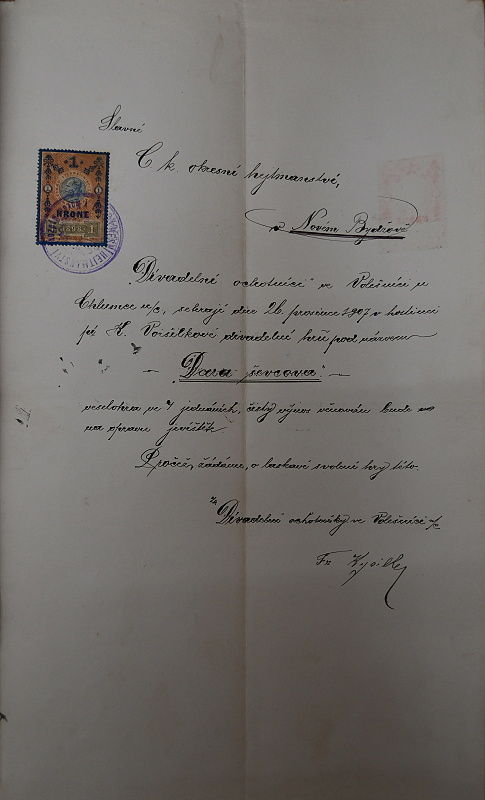 Slavné
C. k. okresní hejtmanství,
v Novém Bydžově
1
KRONE
1898
Divadelní ochotníci ve Volešnici u
Chlumce n/c, sehrají dne 26. prosince 1907 v hostinci
pí. K. Voišilkové divadelní hru pod názvem
„Dcera ševcova"
veselohra ve 4 jednáních, čistý výnos věnován bude
na opravu jeviště
Pročež, žádáme, o laskavé svolení hry této.
Za
Divadelní ochotníky ve Volešnici n/c
Fr.